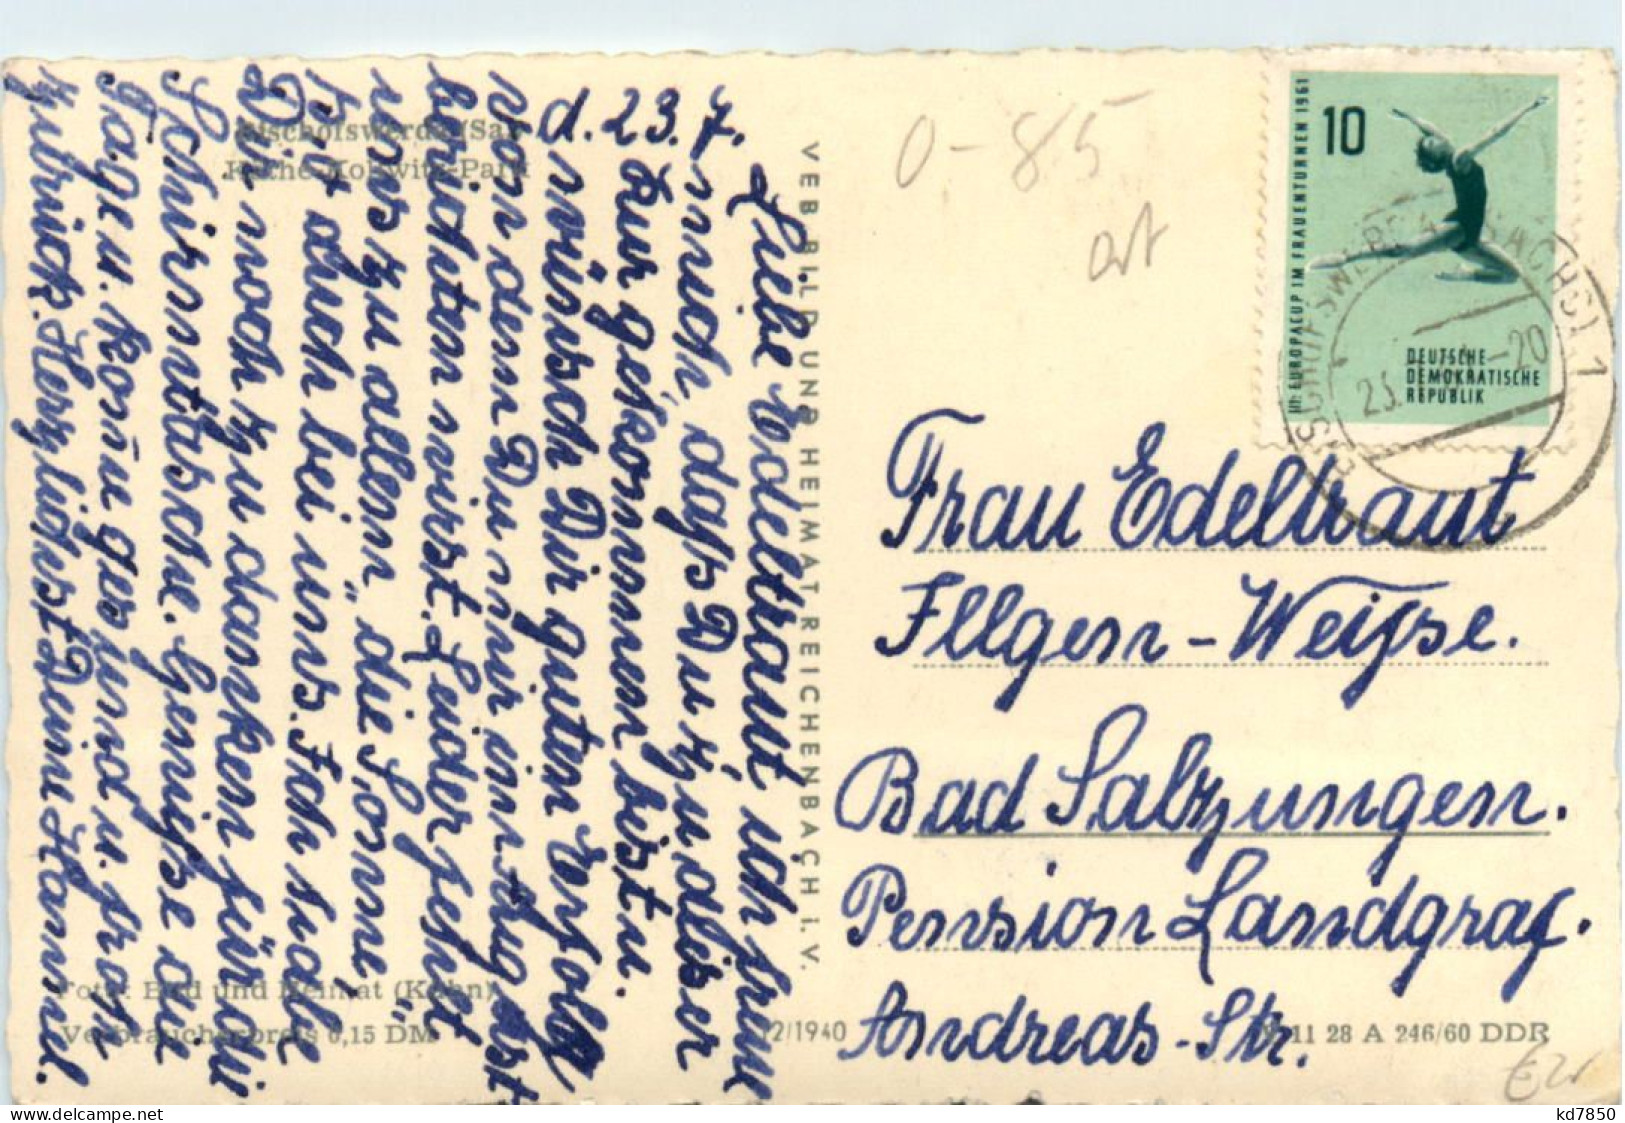 Bischofswerda (Sa.)
Käthe-Kollwitz-Park
d. 23. 7.
Liebe Edeltraut, ich freue
mich, daß Du zu dieser
Kur gekommen bist u.
wünsch Dir guten Erfolg
von dem Du mir einmal
berichten wirst. Leider fehlt
uns zu allem „die Sonne"
B. auch bei uns. Ich
Dir noch zu danken für die
Schirmtasche. Genieße die
Tage u. kom̅e gesund u. froh
zurück. Herzlichst Deine Hannel.
Foto: Bild und Heimat (Kühn)
Verbraucherpreis 0,15 DM
VEB BILD UND HEIMAT REICHENBACH I. V.
12/1940
11 28 A 246/60 DDR
0-85
art
10
III. EUROPACUP IM FRAUENTURNEN 1961
DEUTSCHE
DEMOKRATISCHE
REPUBLIK
BISCHOFSWERDA (SACHS) 1
-20
Frau Edeltraut
Illgen-Weiße.
Bad Salzungen.
Pension Landgraf.
Andreas-Str.
kd7850